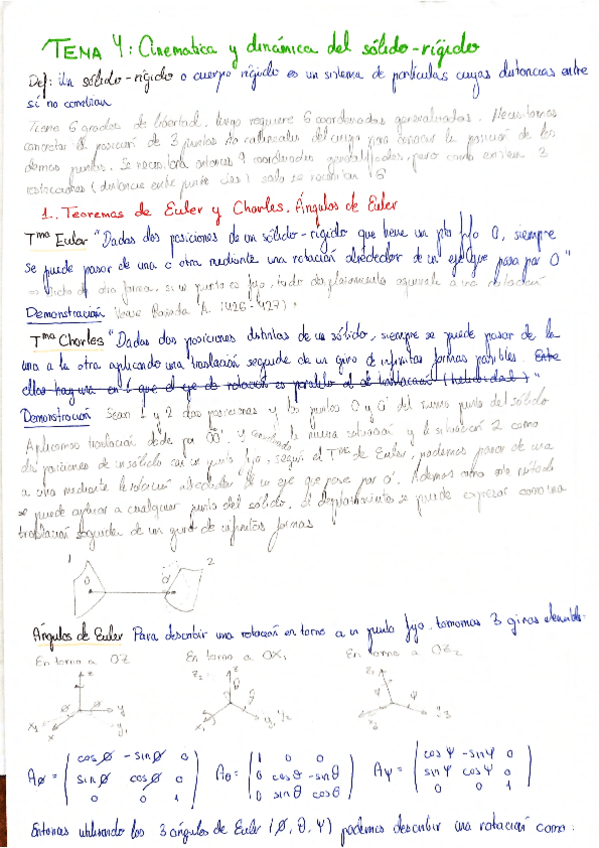 TEMA 4: Cinematica y dinámica del sólido-rígido
Def: Un sólido-rígido o cuerpo rígido es un sistema de partículas cuyas distancias entre
sí no cambian
Tiene 6 grados de libertad, luego requiere 6 coordenadas generalizadas. Necesitamos
concretar la posición de 3 puntos no colineales del cuerpo para conocer la posición de los
demás puntos. Se necesitaría entonces 9 coordenadas generalizadas, pero como existen 3
restricciones (distancia entre puntos cte) solo se necesitan 6
1. Teoremas de Euler y Charles. Ángulos de Euler
Tma Euler "Dadas dos posiciones de un sólido-rígido que tiene un pto fijo O, siempre
se puede pasar de una a otra mediante una rotación alrededor de un eje que pasa por O"
dicho de otra forma, si un punto es fijo, todo desplazamiento equivale a una rotación
Demostración Véase Rañada (A. (426-427)).
Tma Charles "Dadas dos posiciones distintas de un sólido, siempre se puede pasar de la
una a la otra aplicando una traslación seguida de un giro de infinitas formas posibles. Entre
ellas hay una en la que el eje de rotación es paralelo al de traslación (helicoidal)"
Demostración Sean 1 y 2 dos posiciones y los puntos O y O' del mismo punto del sólido
Aplicamos traslación dada por OO', y la nueva situación y la situación 2 como
dos posiciones de un sólido con un punto fijo, según el Tma de Euler, podemos pasar de una
a otra mediante la rotación alrededor de un eje que pase por O'. Además como este método
se puede aplicar a cualquier punto del sólido, el desplazamiento se puede expresar como una
traslación seguida de un giro de infinitas formas
1 2
O O'
Ángulos de Euler Para describir una rotación en torno a un punto fijo, tomamos 3 giros
En torno a OZ En torno a OX₁ En torno a OZ₂
z z₂ z z₂
x x₁ y y₁ x₁ y₁ y₂ y₃
Aø = ( cosø -sinø 0 ) Aθ = ( 1 0 0 ) Aψ = ( cosψ -sinψ 0 )
( sinø cosø 0 ) ( 0 cosθ -sinθ ) ( sinψ cosψ 0 )
( 0 0 1 ) ( 0 sinθ cosθ ) ( 0 0 1 )
Entonces utilizando los 3 ángulos de Euler (ø, θ, ψ) podemos describir una rotación como: